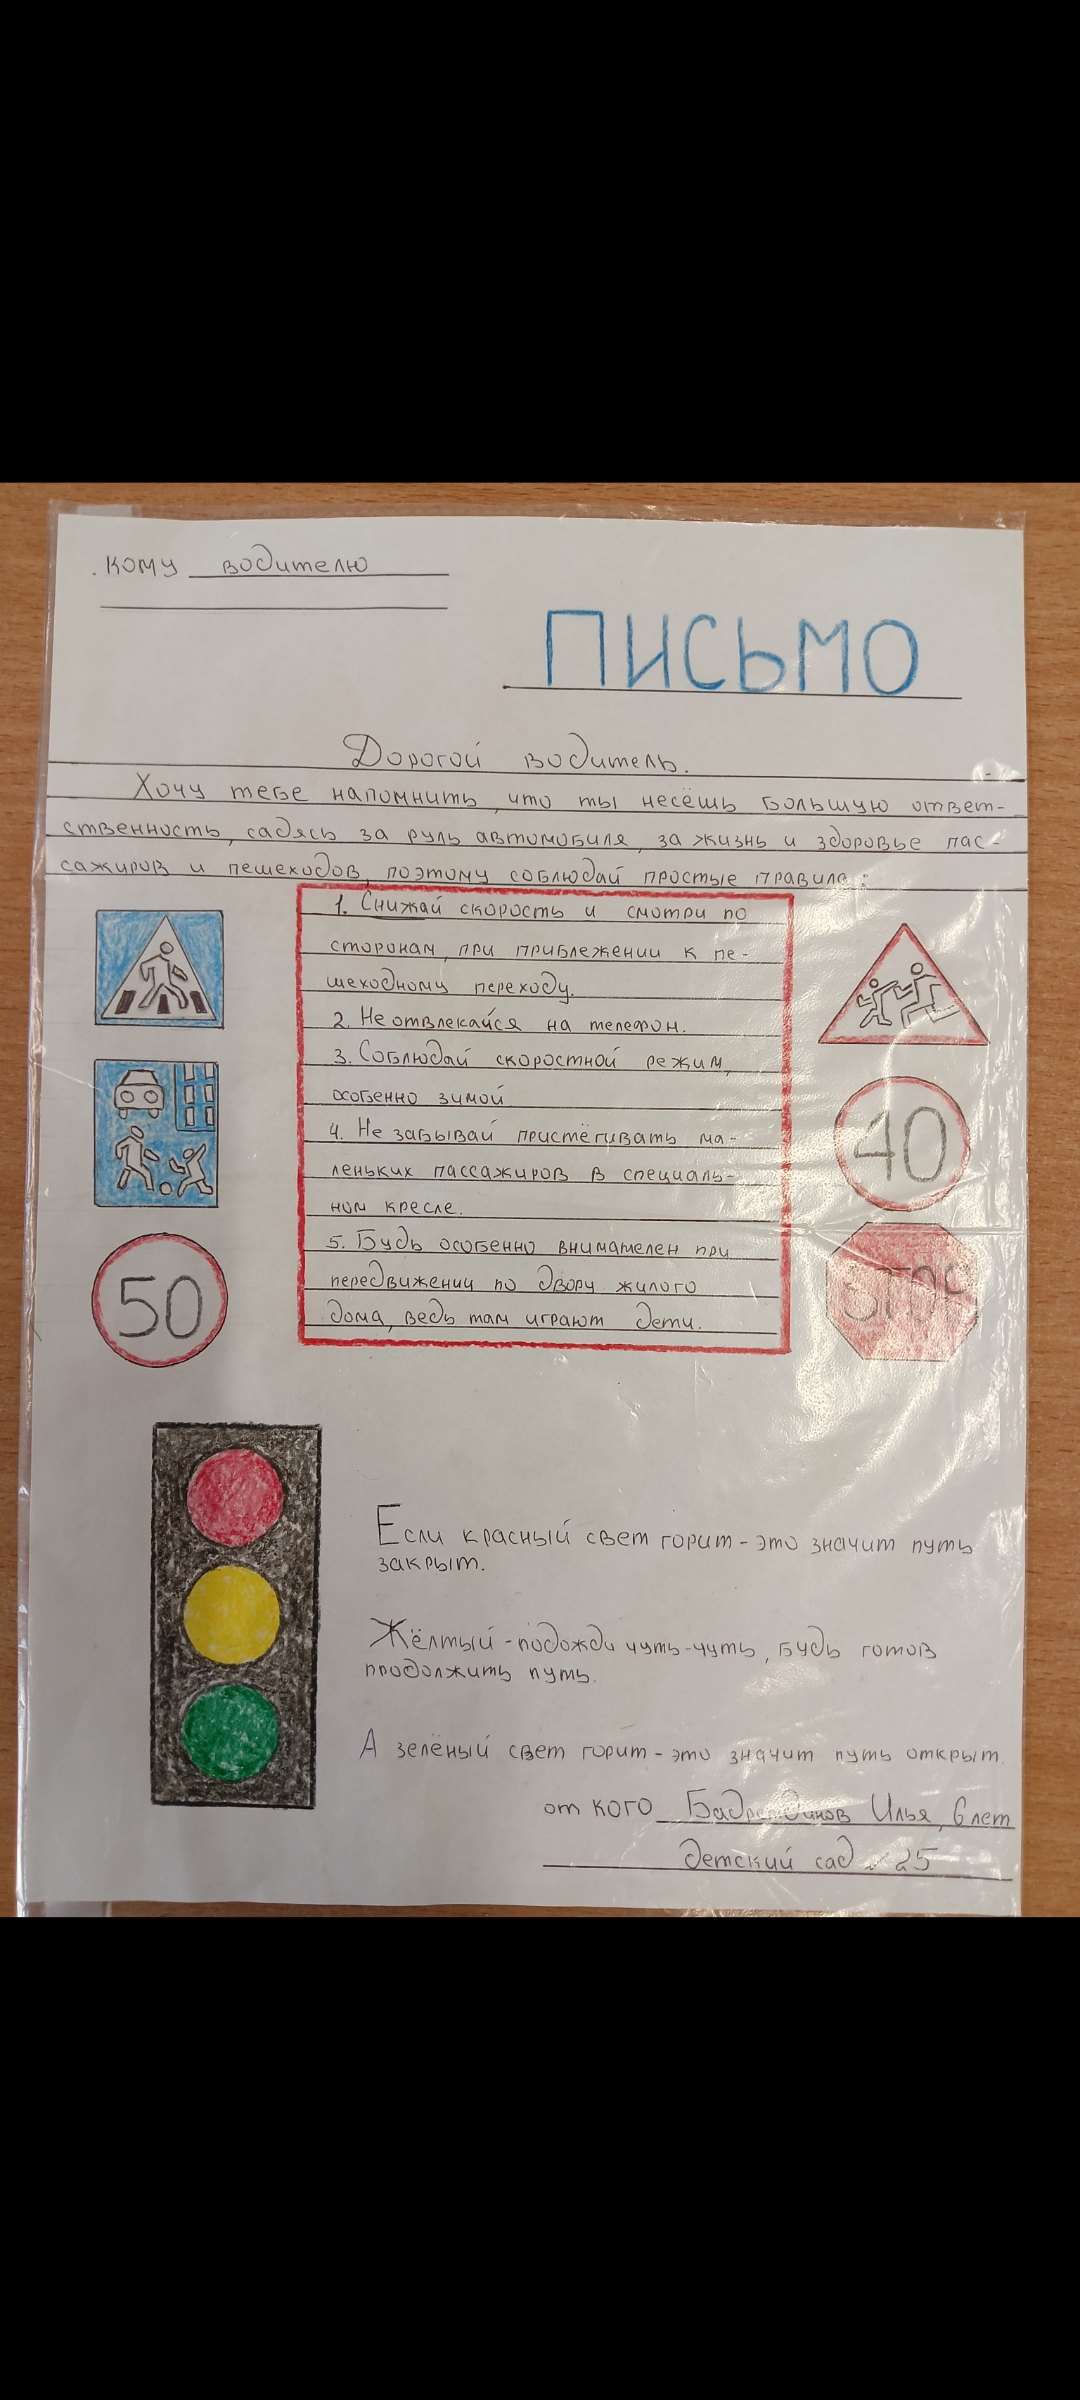 кому водителю
ПИСЬМО
Дорогой водитель.
Хочу тебе напомнить, что ты несёшь большую ответ-
ственность, садясь за руль автомобиля, за жизнь и здоровье пас-
сажиров и пешеходов, поэтому соблюдай простые правила:
1. Снижай скорость и смотри по
сторонам, при приблежении к пе-
шеходному переходу.
2. Не отвлекайся на телефон.
3. Соблюдай скоростной режим,
особенно зимой
4. Не забывай пристёгивать ма-
леньких пассажиров в специаль-
ном кресле.
5. Будь особенно внимателен при
передвижении по двору жилого
дома, ведь там играют дети.
40
50
STOP
Если красный свет горит - это значит путь
закрыт.
Жёлтый - подожди чуть-чуть, будь готов
продолжить путь.
А зелёный свет горит - это значит путь открыт.
от кого Илья, 6 лет
детский сад 25